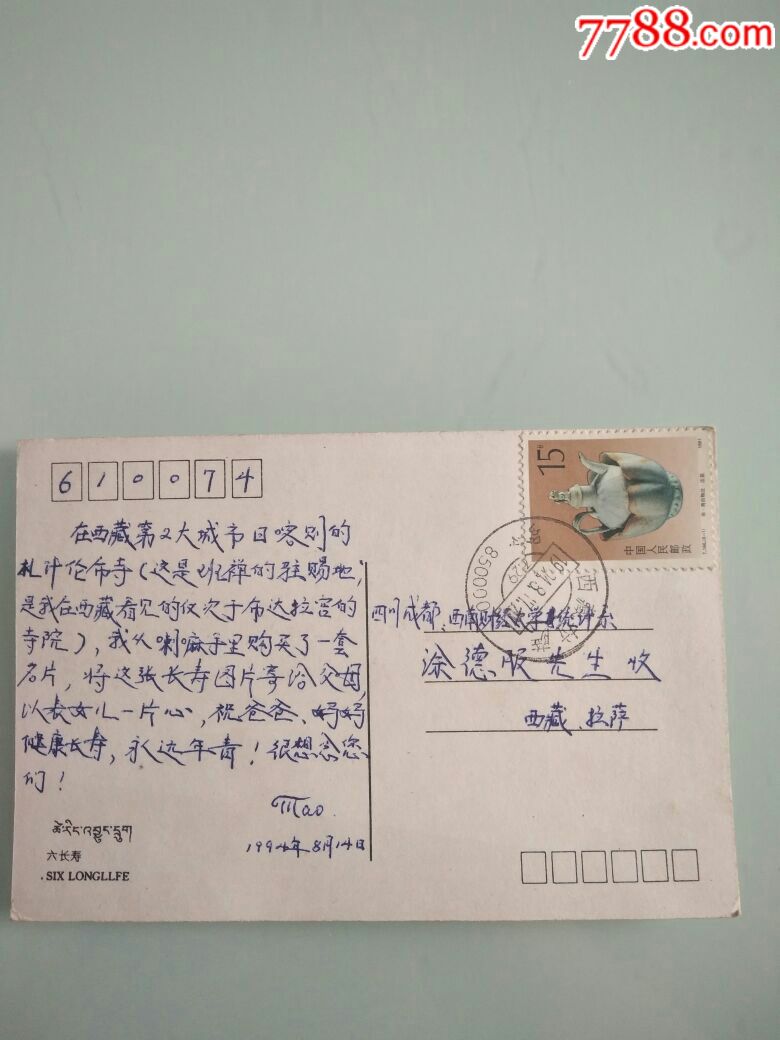 7788.com
610074
15分
中国人民邮政
850000
西藏
在西藏第2大城市日喀则的
札什伦布寺（这是班禅的驻赐地，
是我在西藏看见的仅次于布达拉宫的
寺院），我从喇嘛手里购买了一套
名片，将这张长寿图片寄给父母，
以表女儿一片心，祝爸爸、妈妈
健康长寿，永远年青！很想念您
们！
Mao
1994年8月14日
四川成都、西南财经大学统计系
涂德服先生收
西藏、拉萨
ཚེ་རིང་འབྱུང་དྲུག
六长寿
SIX LONGLLFE